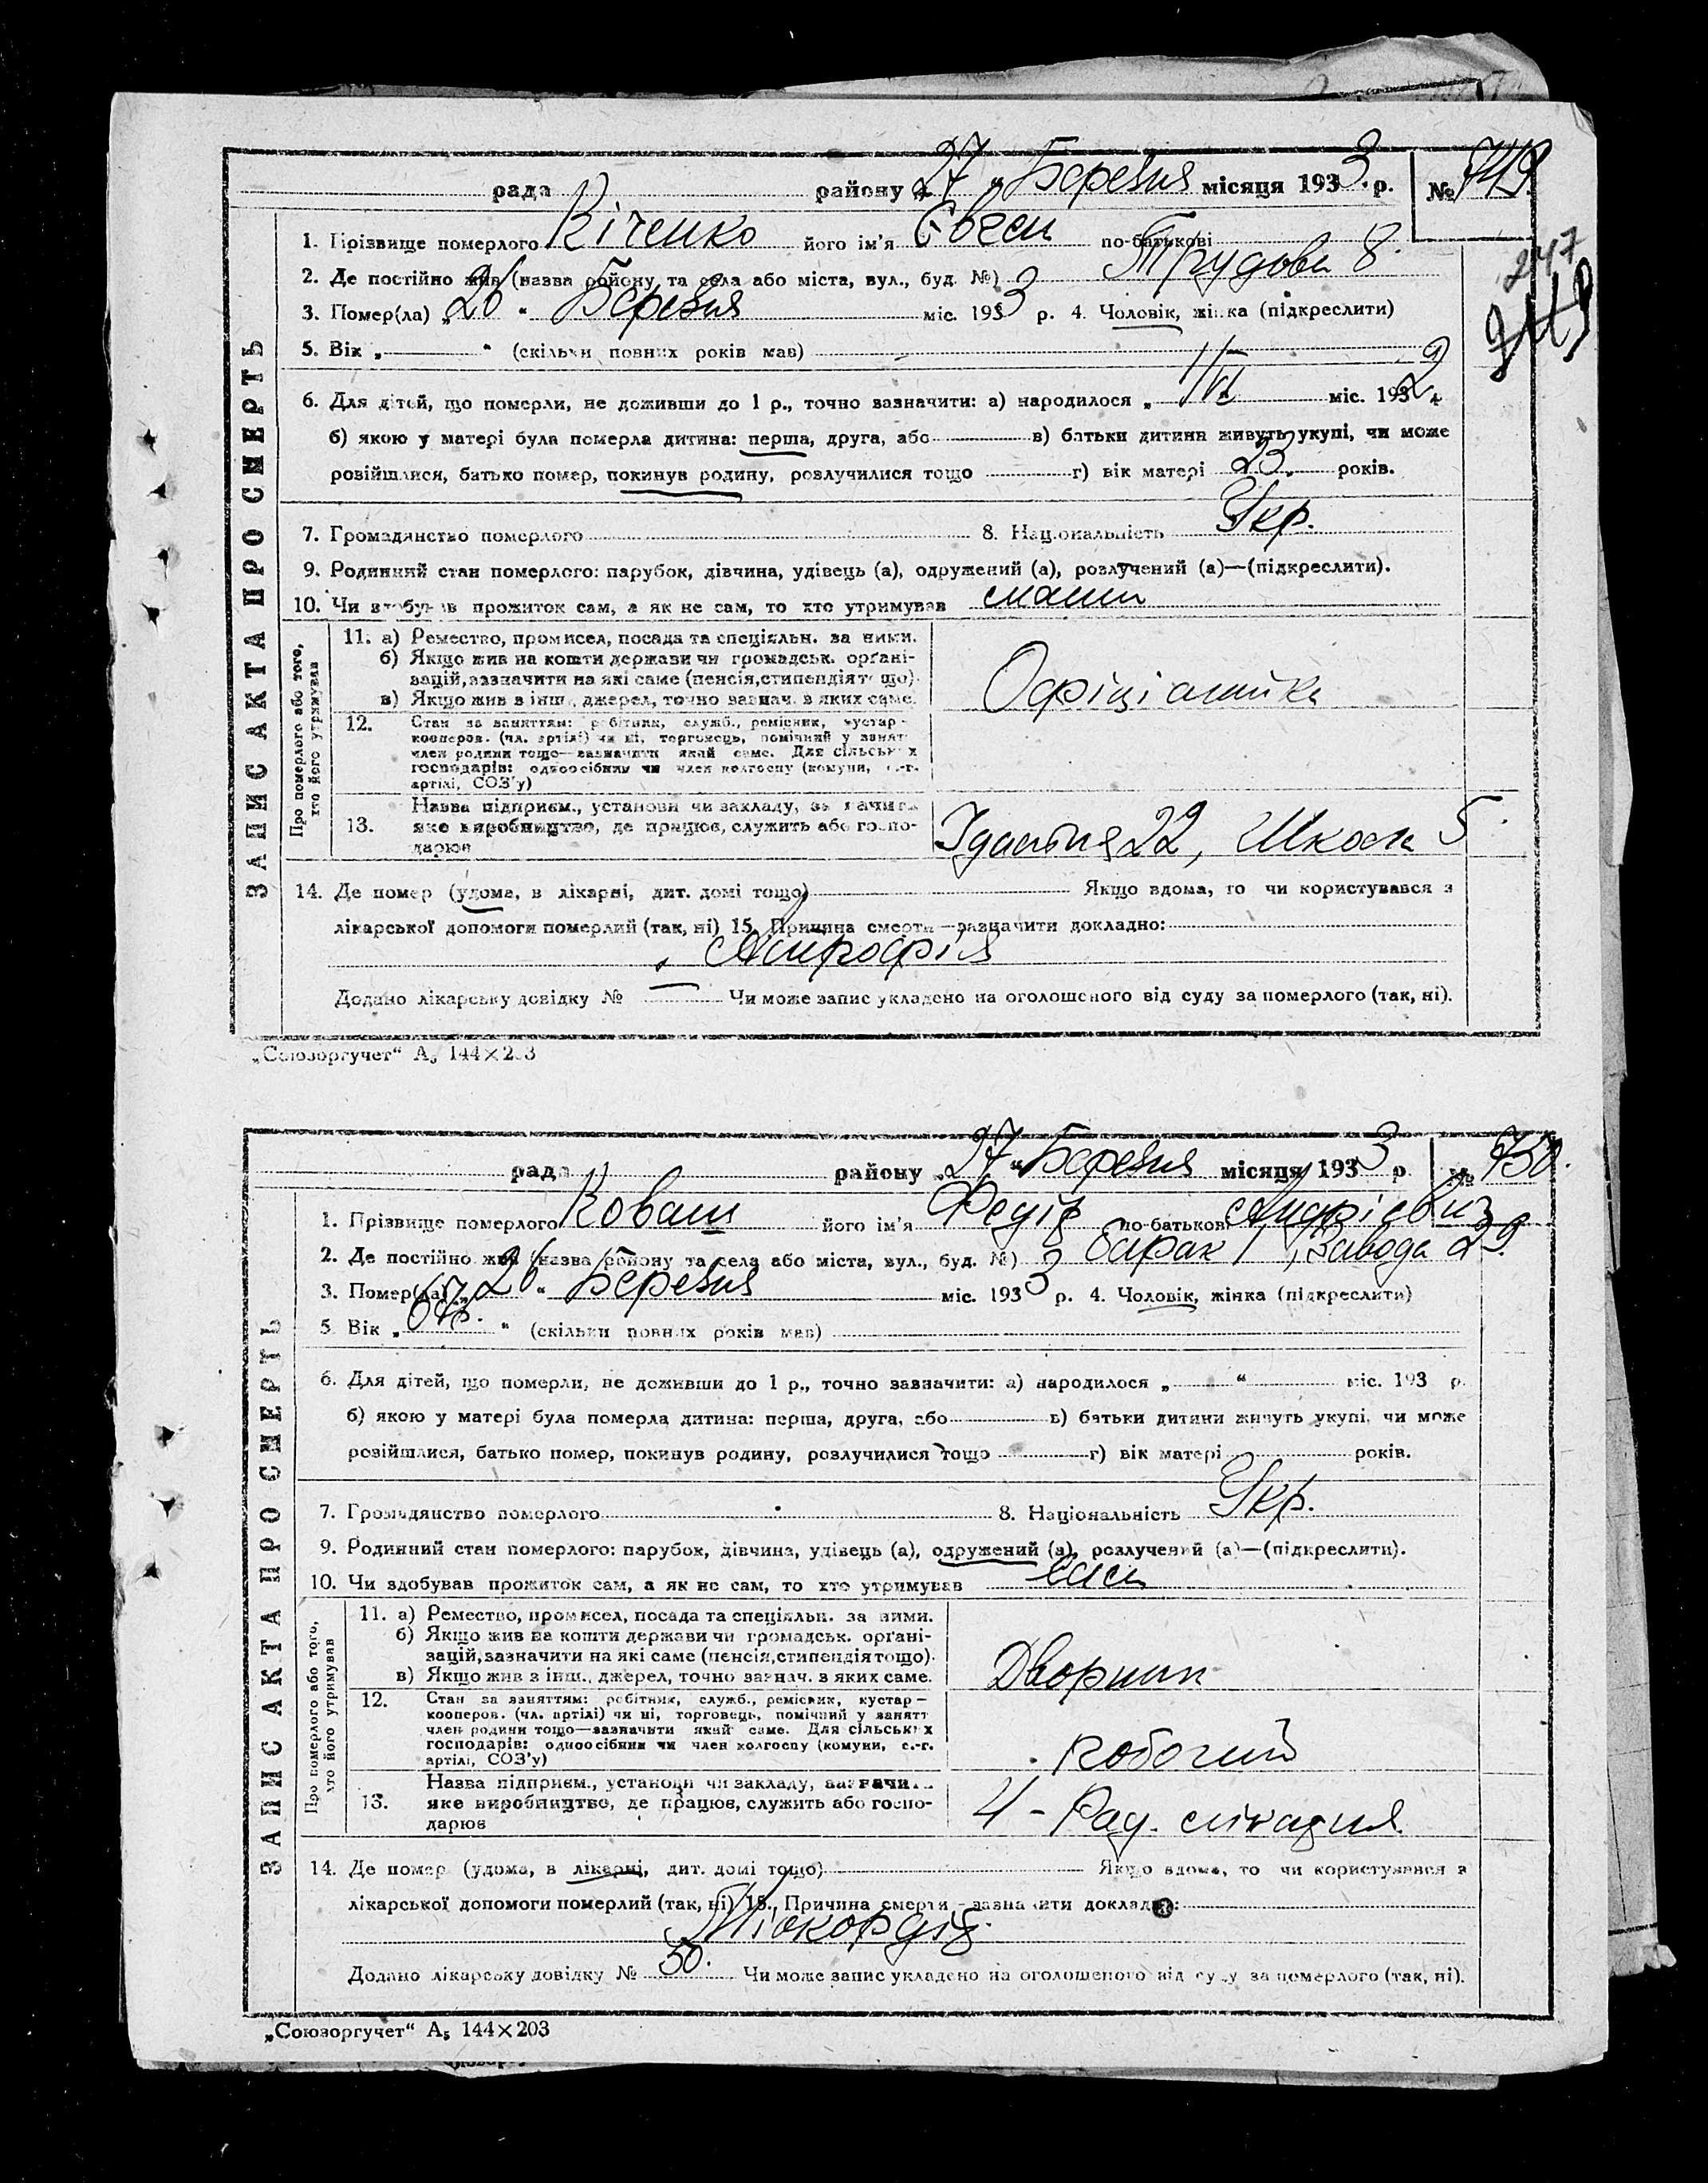 рада района „27 „ Березня місяця 1933 р. № 749
1. Прізвище померлого Кіченко його ім'я Євген по-батькові
2. Де постійно жив (назва району та села або міста, вул., буд. №) Трудова 8.
3. Помер(ла) „26 “ Березня міс. 1933 р. 4. Чоловік, жінка (підкреслити)
5. Вік „ “ (скільки повних років мав) –
6. Для дітей, що померли, не доживши до 1 р., точно зазначити: а) народилося „ 1/VI міс. 1932 р.
б) якою у матері була померла дитина: перша, друга, або в) батьки дитини живуть укупі, чи може
розійшлися, батько помер, покинув родину, розлучилися тощо г) вік матері 23. років.
7. Громадянство померлого 8. Національність Укр.
9. Родинний стан померлого: парубок, дівчина, удівець (а), одружений (а), розлучений (а)—(підкреслити).
10. Чи здобував прожиток сам, а як не сам, то хто утримував мати
ЗАПИС АКТА ПРО СМЕРТЬ
Про померлого або того,
хто його утримував
11. а) Ремество, промисел, посада та спеціяльн. за ними.
б) Якщо жив на кошти держави чи громадськ. органі-
зацій, зазначити на які саме (пенсія, стипендія тощо).
в) Якщо жив з інш. джерел, точно зазнач. з яких саме.
Офіціантка
12. Стан за заняттям: робітник, служб., ремісник, кустар-
кооперов. (чл. артілі) чи ні, торговець, помічний у занятт
член родини тощо—зазначити який саме. Для сільських
господарів: одноосібник чи член колгоспу (комуни, с.-г.
артілі, СОЗ'у)
13. Назва підприєм., установи чи закладу, зазначити
яке виробництво, де працює, служить або госпо-
дарює
Їдальня 22, Школа 5
14. Де помер (удома, в лікарні, дит. домі тощо) Якщо вдома, то чи користувався з
лікарської допомоги померлий (так, ні) 15. Причина смерти—зазначити докладно:
Атрофія
Додано лікарську довідку № — Чи може запис укладено на оголошеного від суду за померлого (так, ні).
„Союзоргучет“ А₅ 144×203
747
рада району „27 “ Березня місяця 1933 р. № 750.
1. Прізвище померлого Коваш його ім'я Федір по-батькові Андрієвич
2. Де постійно жив (назва району та села або міста, вул., буд. №) барак 1, Завода 29.
3. Помер(ла) „26 “ Березня міс. 1933 р. 4. Чоловік, жінка (підкреслити)
5. Вік „ 67р. “ (скільки повних років мав)
6. Для дітей, що померли, не доживши до 1 р., точно зазначити: а) народилося „ “ міс. 193 р.
б) якою у матері була померла дитина: перша, друга, або в) батьки дитини живуть укупі, чи може
розійшлися, батько помер, покинув родину, розлучилися тощо г) вік матері років.
7. Громадянство померлого 8. Національність Укр.
9. Родинний стан померлого: парубок, дівчина, удівець (а), одружений (а), розлучений (а)—(підкреслити).
10. Чи здобував прожиток сам, а як не сам, то хто утримував сам
ЗАПИС АКТА ПРО СМЕРТЬ
Про померлого або того,
хто його утримував
11. а) Ремество, промисел, посада та спеціяльн. за ними.
б) Якщо жив на кошти держави чи громадськ. органі-
зацій, зазначити на які саме (пенсія, стипендія тощо).
в) Якщо жив з інш., джерел, точно зазнач. з яких саме.
Дворник
12. Стан за заняттям: робітник, служб., ремісник, кустар—
кооперов. (чл. артілі) чи ні, торговець, помічний у занятт
член родини тощо—зазначити який саме. Для сільських
господарів: одноосібник чи член колгоспу (комуни, с.-г.
артілі, СОЗ'у)
робочий
13. Назва підприєм., установи чи закладу, зазначити
яке виробництво, де працює, служить або госпо-
дарює
4 - Рад. лікарня.
14. Де помер (удома, в лікарні, дит. домі тощо) Якщо вдома, то чи користувався з
лікарської допомоги померлий (так, ні) 15. Причина смерти—зазначити докладно:
Міокордіт.
Додано лікарську довідку № 50. Чи може запис укладено на оголошеного від суду за померлого (так, ні).
„Союзоргучет“ А₅ 144×203